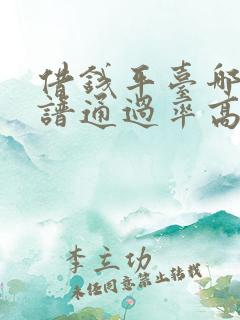 借錢平臺哪
譜通過率高
李立功
未经同意禁止转载